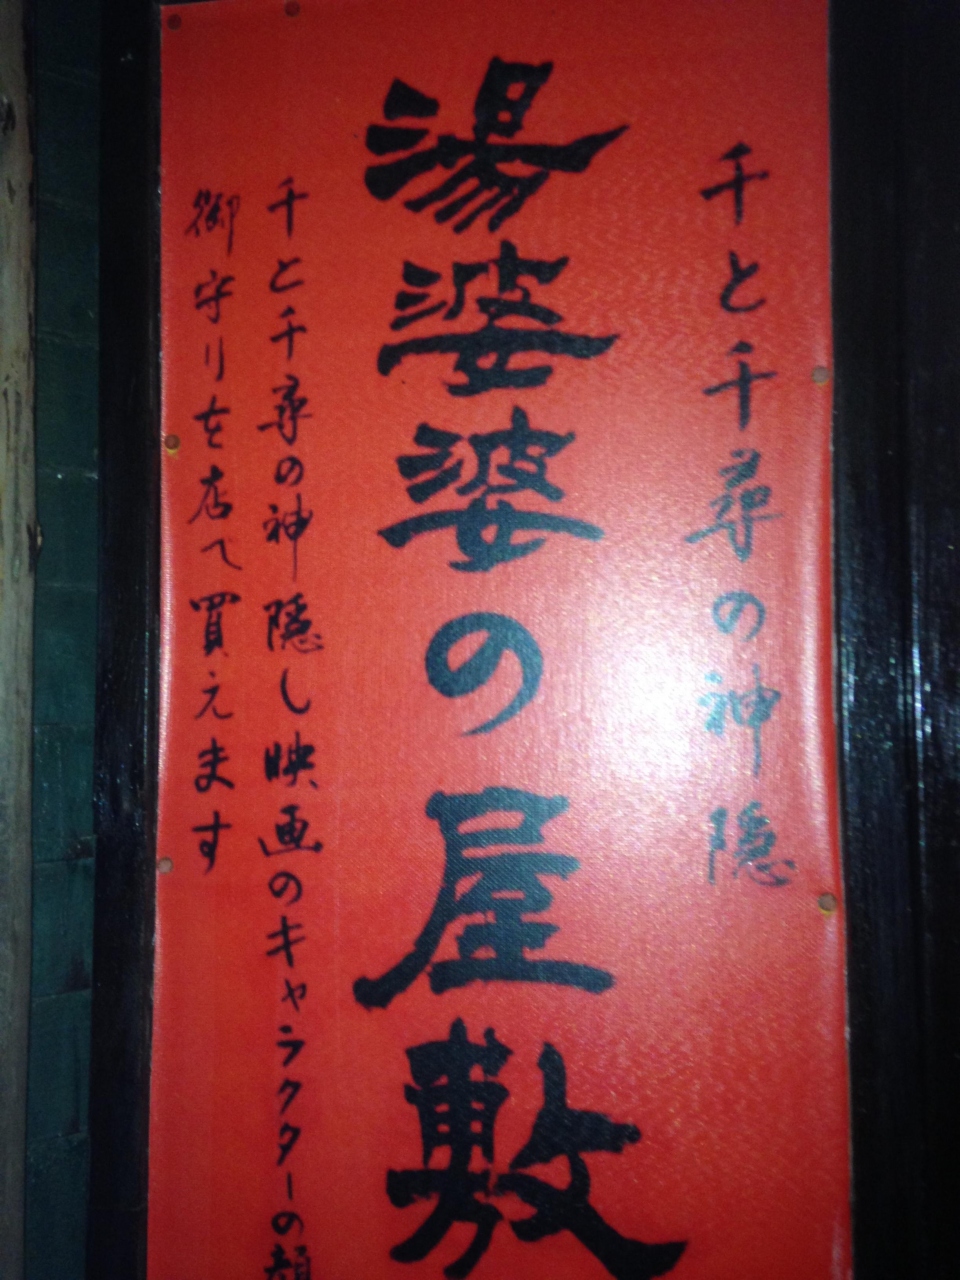 千と千尋の神隠
湯婆婆の屋敷
千と千尋の神隠し映画のキャラクターの顔
御守りを店で買えます